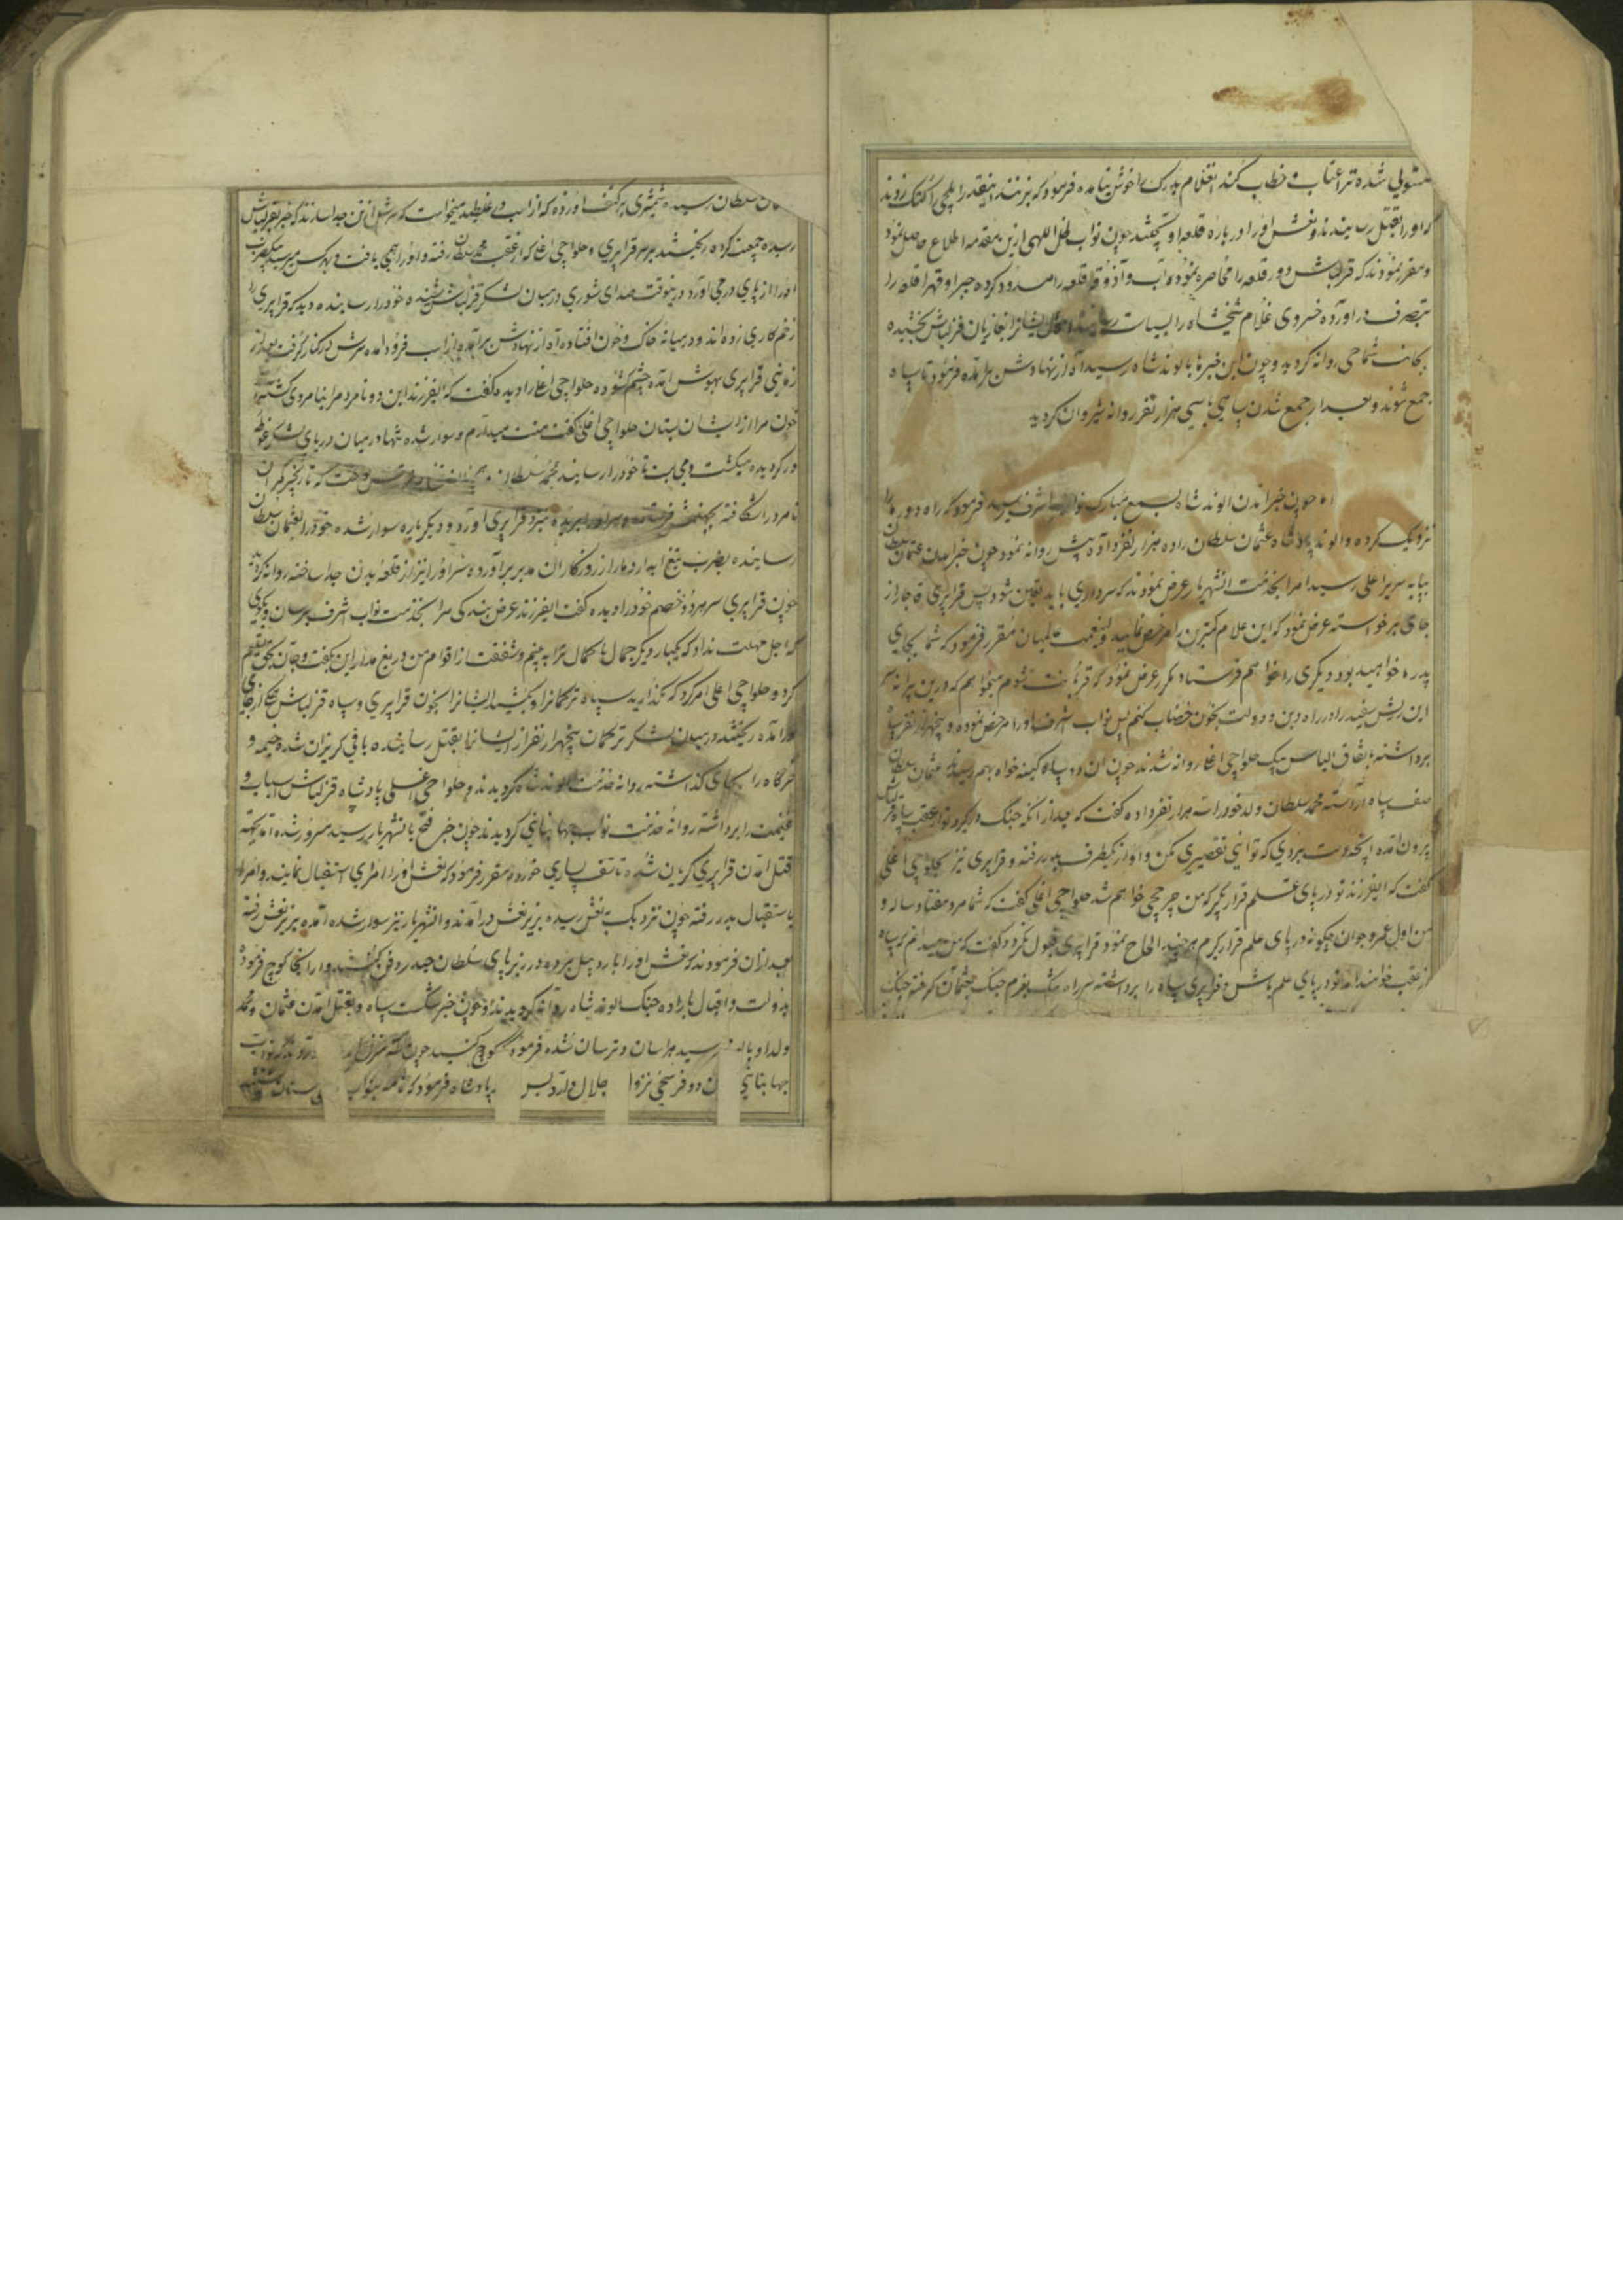 شده ترا عتاب و خطاب کند انغلام بدرک را خوش نیامده فرمود که بزنند اینقدر ایلچی را کتک زدند
که او را بقتل رسانیدند و نعش او را در باره قلعه او یختند چون نواب ظل اللهی ازین مقدمه اطلاع حاصل نمود
و مقرر نمودند که قزلباش دور قلعه را محاصره نموده آب و آذوقه قلعه را مسدود کرده جبرا و قهرا قلعه را
بتصرف در آورده خسروی غلام شیخشاه را بسیاست قزلباش بخشیده
روانه گردید و چون این خبرها بالوند شاه رسید آه از نهادش برآمده فرمود تا سپاه
جمع شوند و بعد از جمع شدن سپاهی با سی هزار نفر روانه شیروان گردید
اما چون خبر امدن الوند شاه بسمع مبارک نواب اشرف رسید فرمود که راه دوره را
نزدیک کرده و الوند پادشاه عثمان سلطان را ده هزار نفر داده پیش روانه نمود چون خبر امدن عثمان سلطان
بپایه سریر اعلی رسید امرا بخدمت انشهریار عرض نمودند که سرداری باید تعین شود پس قرا پیری قاجار از
جای برخواسته عرض نمود که این غلام کمترین را مرخص نمایید ولینعمت عالمیان مقرر فرمود که شما بجای
پدر ما خواهید بود دیگری را خواهم فرستاد مکرر عرض نمود که قربانت شوم میخواهم که درین پیرانه سر
این ریش سفید را در راه دین و دولت بخون خضاب کنم پس نواب اشرف او را مرخص نموده و پنجهزار نفر سپاه
برداشته باتفاق الیاس بیک حلواچی اغلی روانه شدند چون ان دو سپاه کینه خواه بهم رسیدند عثمان سلطان
صف سپاه آراسته محمد سلطان ولد خود را سه هزار نفر داده گفت که بعد از انکه جنگ در گیرد تو از عقب سپاه قزلباش
بیرون آمده آنچه دست بردی که توانی تقصیری مکن و او از یکطرف بدر رفته و قرا پیری نیز بحلواچی اغلی
گفت که ایفرزند تو در پای علم قرار بگیر که من چرخچی خواهم شد حلواچی اغلی گفت که شما مرد هفتاد ساله و
من اول عمر و جوان چگونه در پای علم قرار گیرم هر چند الحاح نمود قرا پیری قبول نکرد و گفت که من میدانم که سپاه
از عقب خواهند امد تو در پای علم باش و قرا پیری سپاه را برداشته سر راه بعزم جنگ عثمان گرفته جنگ
سلطان رسیده شمشیری بر کتف او زده که از اسب در غلطید میخواست که سرش از تن جدا سازند که خبر بقزلباش
رسیده جمعیت کرده ریختند بر سر قرا پیری و حلواچی اغلی که از عقب محمد سلطان رفته و او را نمی یافت و بهر کس میرسید بیک ضرب
او را از پای در می آورد درینوقت صدای شوری در میان لشکر قزلباش شنیده خود را رسانیده دید که قرا پیری را
زخم کاری زده اند و در میانه خاک و خون افتاده آه از نهادش برآمده از اسب فرود امده سرش در کنار گرفت بعد از
زمانی قرا پیری بهوش امده چشم گشوده حلواچی اغلی را دیده گفت که ایفرزند این دو نامرد مرا بنامردی کشتند
خون مرا از ایشان بستان حلواچی اغلی گفت منت میدارم و سوار شده تنها در میان دریای لشکر غوطه
ور گردیده میکشت و می بست تا خود را رسانید بمحمد سلطان
نامرد را شکافته بجهنم فرستاده و سر او را بریده بنزد قرا پیری آورد و دیگر باره سوار شده خود را بعثمان سلطان
رسانیده بضرب تیغ ابدار دمار از روزگار ان مدبر برآورده سر او را نیز از قلعه بدن جدا ساخته روانه گردید
چون قرا پیری سر هر دو خصم خود را دیده گفت ایفرزند عرض بندگی مرا بخدمت نواب اشرف برسان و بگوی
که اجل مهلت نداد که یکبار دیگر جمال با کمال ترا به بینم و شفقت از اقوام من دریغ مدار این بگفت و جان بحق تسلیم
کرد و حلواچی اغلی امر کرد که نگذارید سپاه ترکمانرا و بکشید ایشانرا بخون قرا پیری و سپاه قزلباش از جای
درآمده ریختند در میان لشکر ترکمان پنجهزار نفر از ایشانرا بقتل رسانیده باقی گریزان شده خیمه و
خرگاه را بجای گذاشته روانه خدمت الوند شاه گردیدند و حلواچی اغلی پادشاه قزلباش اسباب و
غنیمت را برداشته روانه خدمت نواب جهانبانی گردیدند چون خبر فتح بانشهریار رسید مسرور شده اما بجهة
قتل امدن قرا پیری گریان شده تاسف بسیاری خورده مقرر فرمود که نعش او را امرای استقبال نمایند و امرا
باستقبال بدر رفته چون نزدیک نعش رسیده بزیر نعش درآمدند و انشهریار نیز سوار شده آمده بزیر نعش رفته
بعد از ان فرمودند که نعش او را باردبیل برده در زیر پای سلطان حیدر دفن کنند و از انجا کوچ فرموده
بدولت و اقبال باراده جنگ الوند شاه روانه گردیدند و چون خبر شکست سپاه و بقتل امدن عثمان و محمد
ولد او بالوند رسید هراسان و ترسان شده فرمود کوچ کنید چون
جهانبانی دو فرسخی نزول جلال پس پادشاه فرمود که نامه بنواب